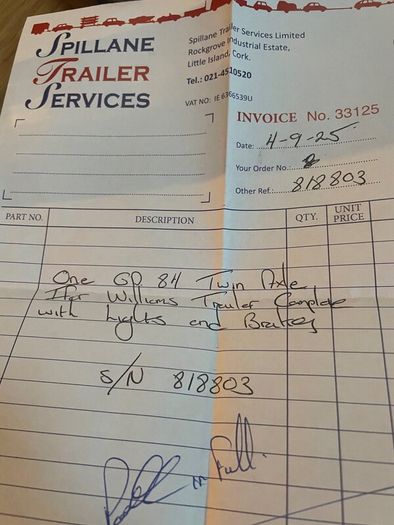 SPILLANE
TRAILER
SERVICES
Spillane Trailer Services Limited
Rockgrove Industrial Estate,
Little Island, Cork.
Tel.: 021-4510520
VAT NO: IE 6366539U
INVOICE No. 33125
Date: 4-9-25
Your Order No.:
Other Ref.: 818803
PART NO. DESCRIPTION QTY. UNIT PRICE
One GD 84 Twin Axle
Ifor Williams Trailer Complete
with Lights and Brakes
S/N 818803
Paid in Full.